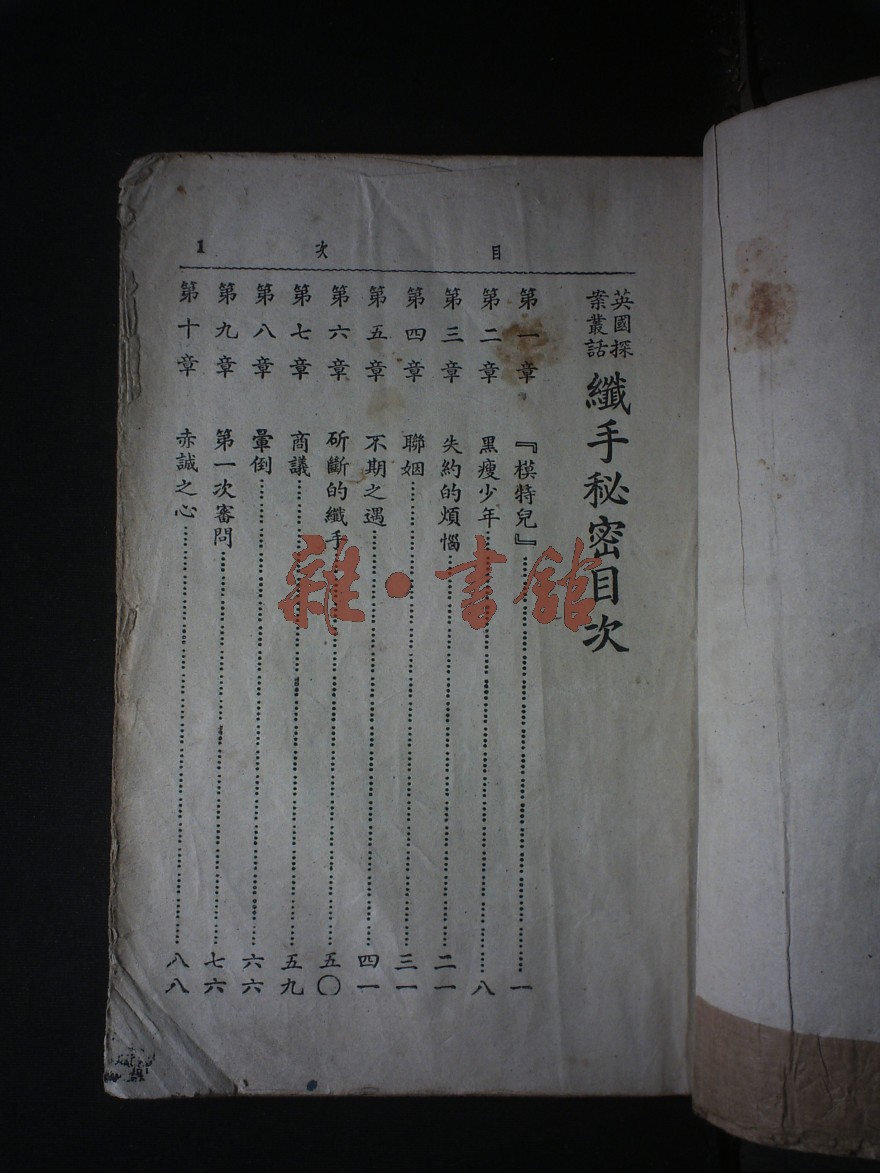 目次 1
英國探案叢話 纖手秘密目次
第一章 『模特兒』 一
第二章 黑瘦少年 八
第三章 失約的煩惱 二一
第四章 聯姻 三一
第五章 不期之遇 四一
第六章 斫斷的纖手 五〇
第七章 商議 五九
第八章 暈倒 六六
第九章 第一次審問 七六
第十章 赤誠之心 八八
雜·書館